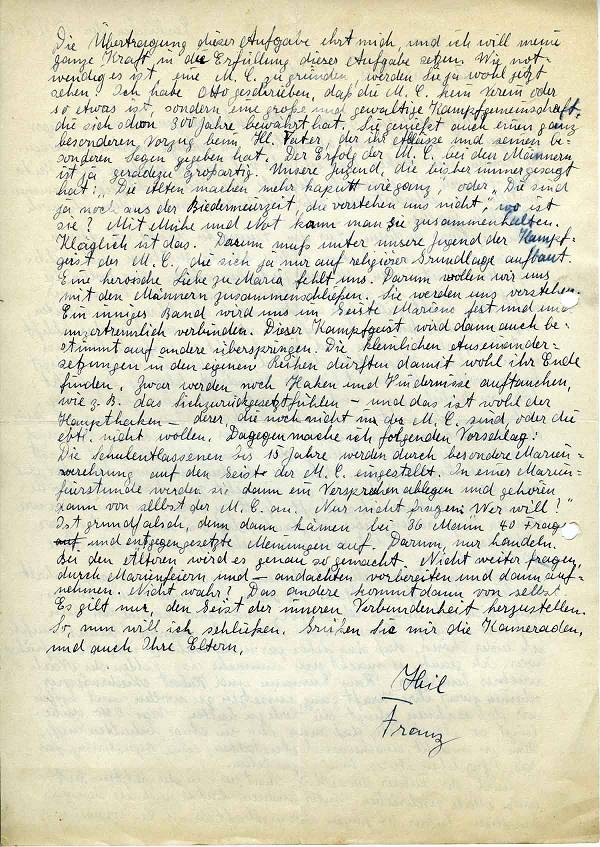 Die Übertragung dieser Aufgabe ehrt mich, und ich will meine
ganze Kraft in die Erfüllung dieser Aufgabe setzen. Wie not-
wendig es ist, eine M. C. zu gründen, werden Sie ja wohl jetzt
sehen. Ich habe Otto geschrieben, daß die M. C. kein Verein oder
so etwas ist, sondern eine große und gewaltige Kampfgemeinschaft,
die sich schon 300 Jahre bewährt hat. Sie genießt auch einen ganz
besonderen Vorzug beim Hl. Vater, der ihr Ablässe und seinen be-
sonderen Segen gegeben hat. Der Erfolg der M. C. bei den Männern
ist ja geradezu großartig. Unsere Jugend, die bisher immer gesagt
hat: „Die Alten machen mehr kaputt wie ganz," oder „Die sind
ja noch aus der Biedermeierzeit, die verstehen uns nicht", wo ist
sie? Mit Mühe und Not kann man sie zusammenhalten.
Kläglich ist das. Darum muß unter unsere Jugend der Kampf-
geist der M. C., die sich ja nur auf religiöser Grundlage aufbaut.
Eine heroische Liebe zu Maria fehlt uns. Darum wollen wir uns
mit den Männern zusammenschließen. Sie werden uns verstehen.
Ein inniges Band wird uns im Geiste Mariens fest und
unzertrennlich verbinden. Dieser Kampfgeist wird dann auch be-
stimmt auf andere überspringen. Die kleinlichen Auseinander-
setzungen in den eigenen Reihen dürften damit wohl ihr Ende
finden. Zwar werden noch Haken und Hindernisse auftauchen,
wie z. B. das Sichzurückgesetztfühlen – und das ist wohl der
Haupthaken – derer, die noch nicht in der M. C. sind, oder die
evtl. nicht wollen. Dagegen mache ich folgenden Vorschlag:
Die Schulentlassenen bis 15 Jahre werden durch besondere Marien-
verehrung auf den Geist der M. C. eingestellt. In einer Marien-
feierstunde werden sie dann ein Versprechen ablegen und gehören
dann von selbst der M. C. an. Nur nicht fragen: Wer will?"
Ist grundfalsch, denn dann kämen bei 36 Mann 40 Fragen
und entgegengesetzte Meinungen auf. Darum, nur handeln.
Bei den Älteren wird es genau so gemacht. Nicht weiter fragen,
durch Marienfeiern und – andachten vorbereiten und dann auf-
nehmen. Nicht wahr? Das andere kommt dann von selbst.
Es gilt nur, den Geist der inneren Verbundenheit herzustellen.
So, nun will ich schließen. Grüßen Sie mir die Kameraden,
und auch Ihre Eltern,
Heil
Franz